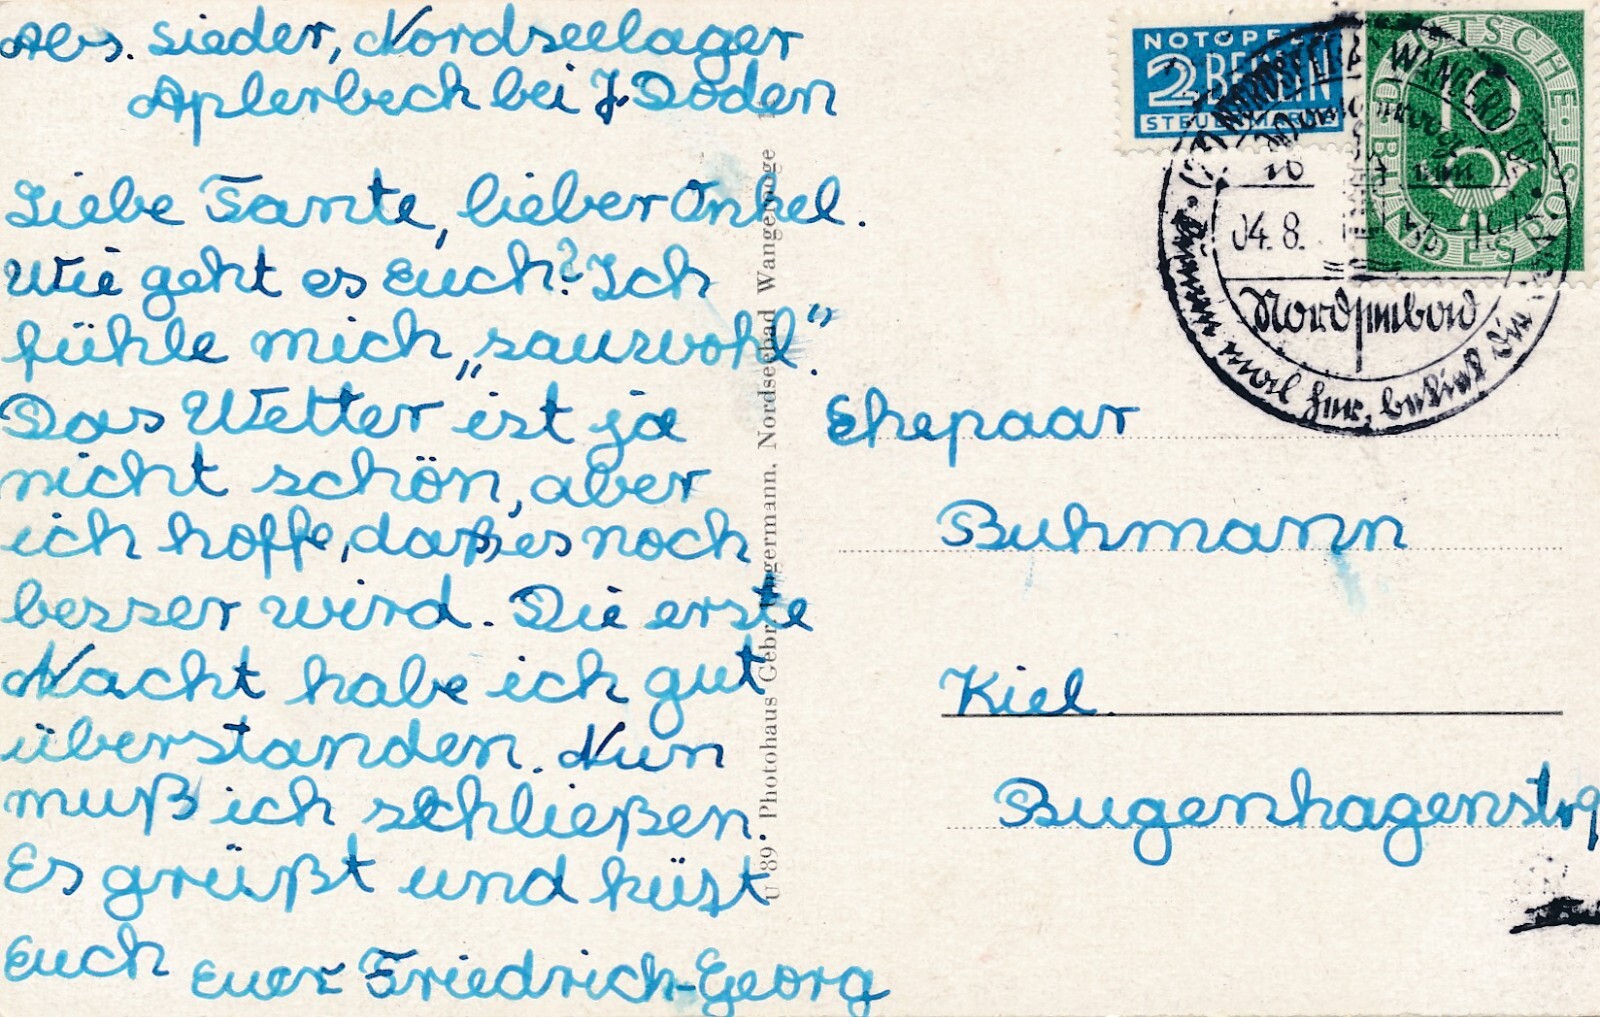 Abs. Sieder, Nordseelager
Aplerbeck bei J. Doden
Liebe Tante, lieber Onkel.
Wie geht es Euch? Ich
fühle mich „sauwohl“.
Das Wetter ist ja
nicht schön, aber
ich hoffe, daß es noch
besser wird. Die erste
Nacht habe ich gut
überstanden. Nun
muß ich schließen.
Es grüßt und küßt
Euch Euer Friedrich-Georg
U 89 Photohaus Gebr. Wangermann, Nordseebad Wangerooge
NOTOPFER
2 BERLIN
STEUERMARKE
DEUTSCHE BUNDESPOST
10
NORDSEEBAD WANGEROOGE
04.8.
Nordseebad
Ehepaar
Buhmann
Kiel
Bugenhagenstr 9